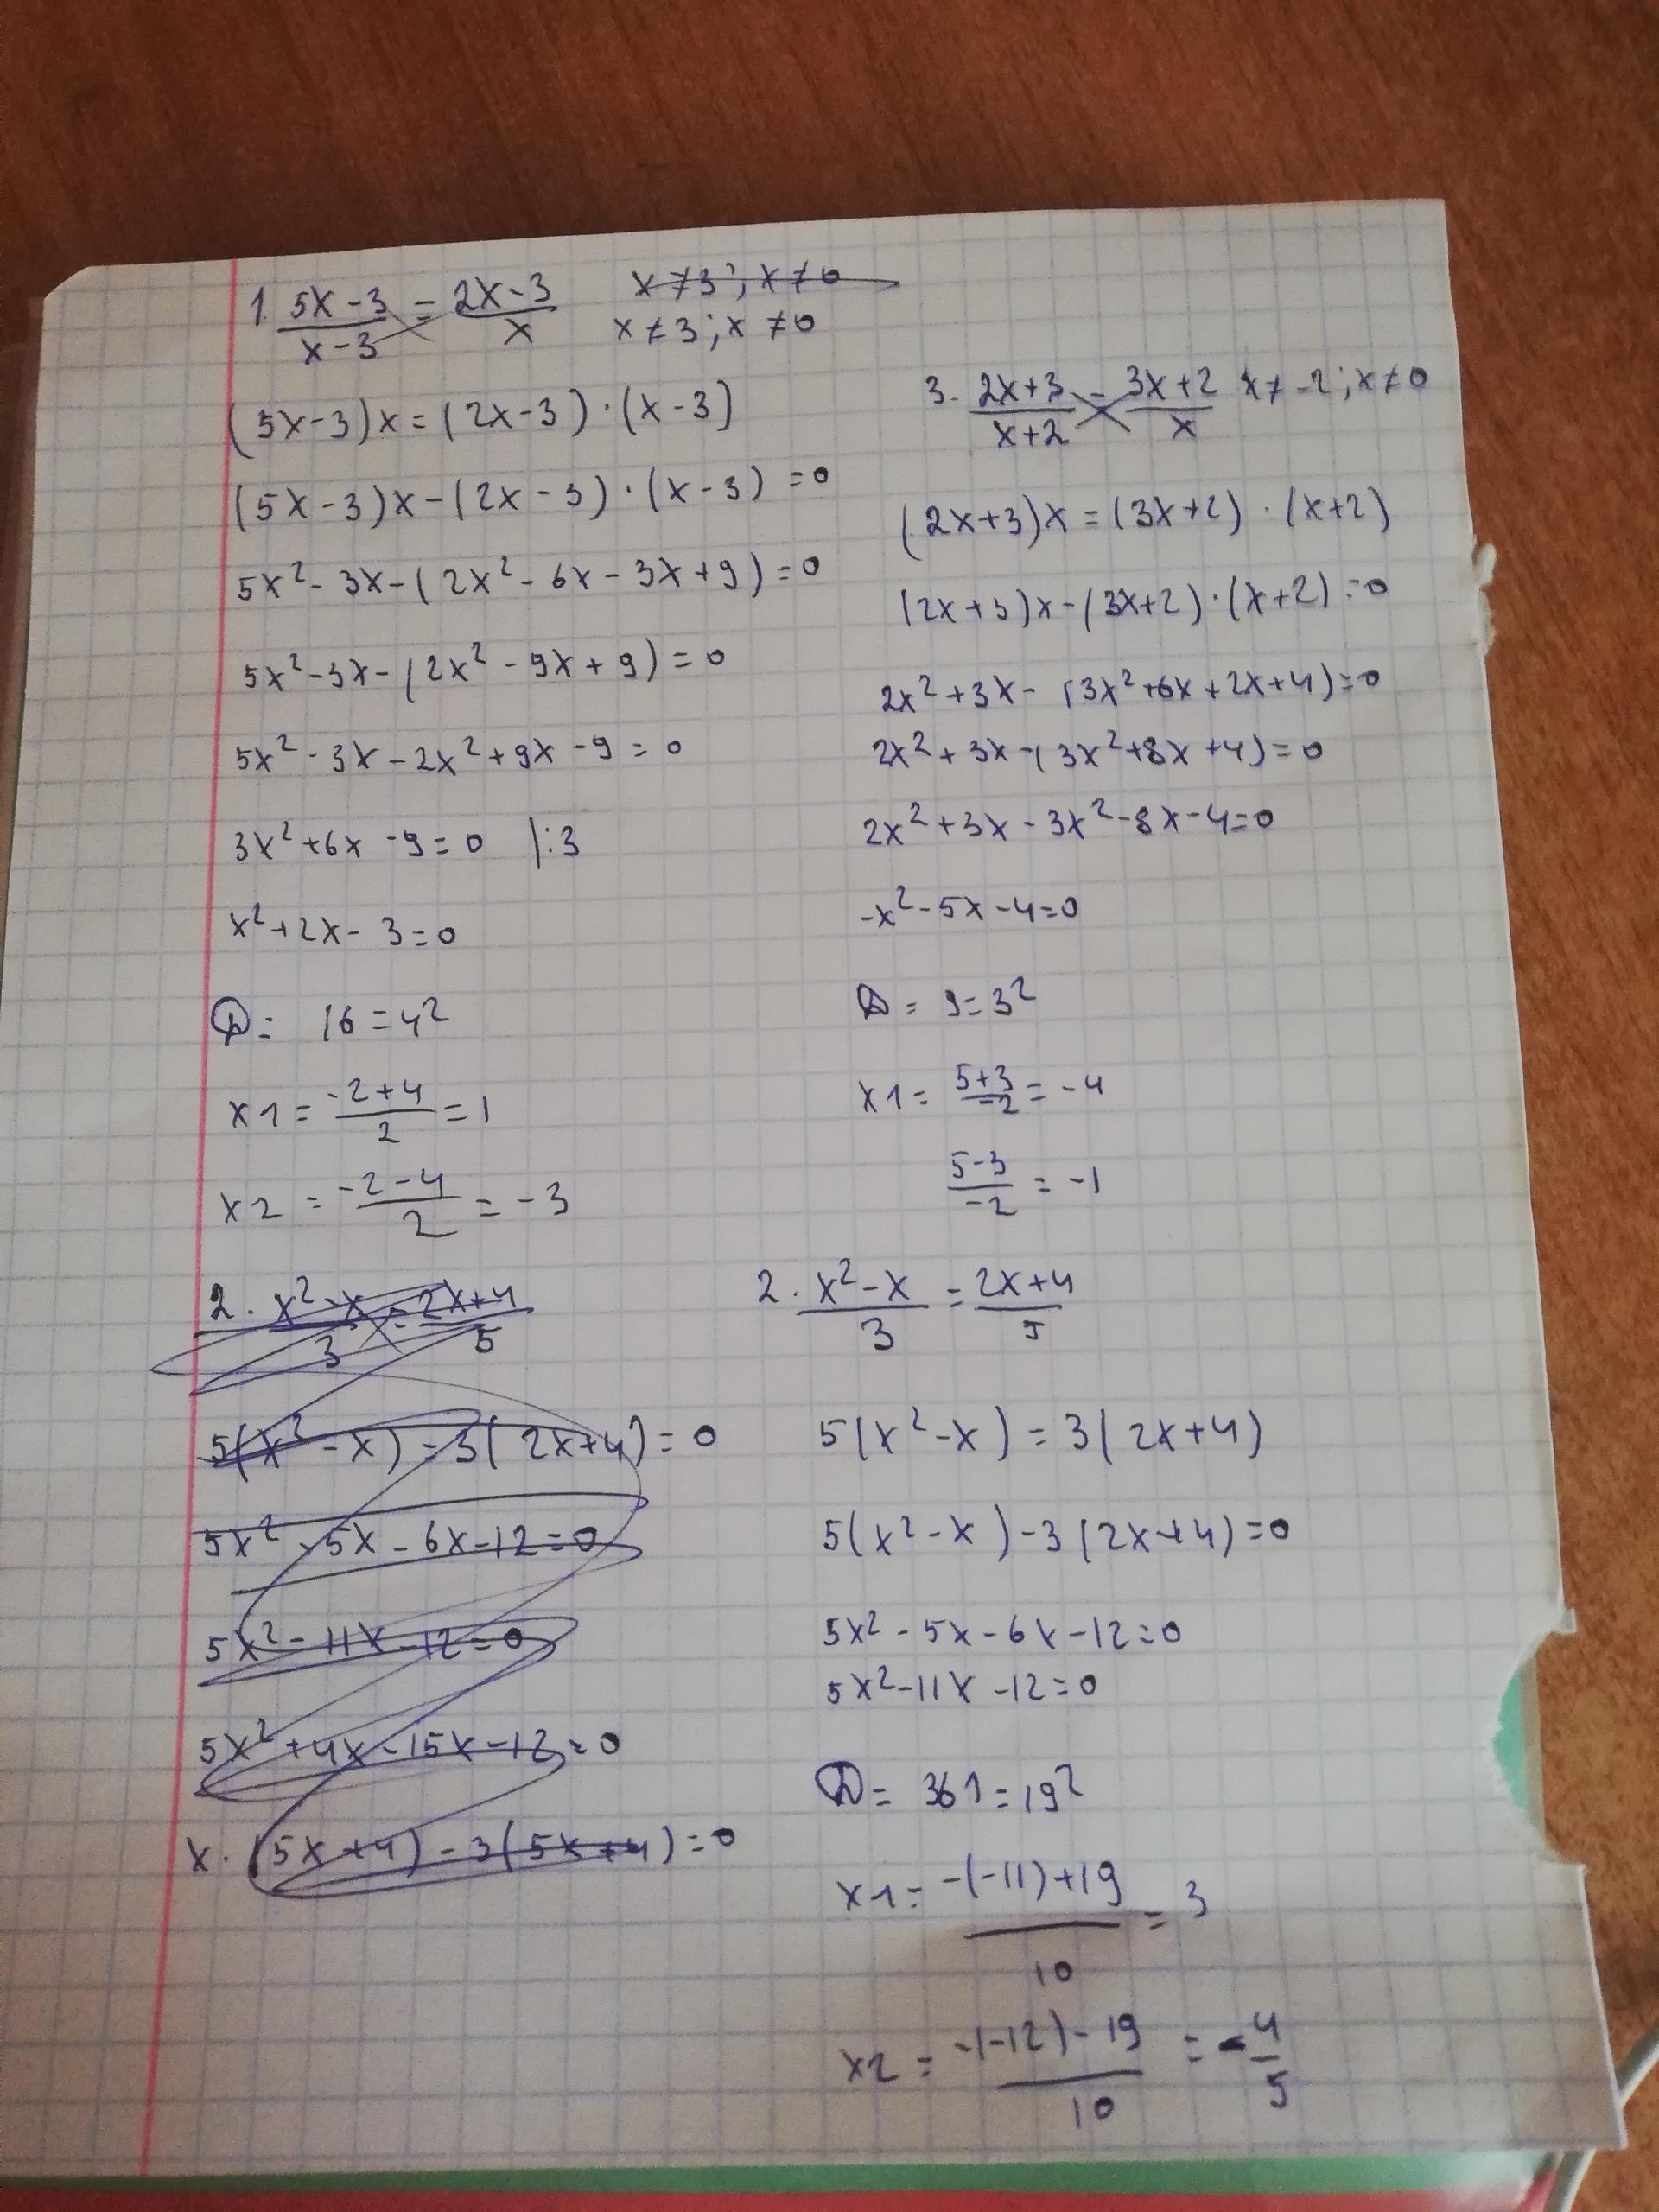 1. (5x-3)/(x-3) = (2x-3)/x x≠3; x≠0
x≠3; x≠0
(5x-3)x=(2x-3)·(x-3)
(5x-3)x-(2x-3)·(x-3)=0
5x²-3x-(2x²-6x-3x+9)=0
5x²-3x-(2x²-9x+9)=0
5x²-3x-2x²+9x-9=0
3x²+6x-9=0 |:3
x²+2x-3=0
D= 16=4²
x1=(-2+4)/2=1
x2=(-2-4)/2=-3
2. (x²-x)/3=(2x+4)/5
5(x²-x)-3(2x+4)=0
5x²-5x-6x-12=0
5x²-11x-12=0
5x²+4x-15x-12=0
x·(5x+4)-3(5x+4)=0
3. (2x+3)/(x+2)=(3x+2)/x x≠-2; x≠0
(2x+3)x=(3x+2)·(x+2)
(2x+3)x-(3x+2)·(x+2)=0
2x²+3x-(3x²+6x+2x+4)=0
2x²+3x-(3x²+8x+4)=0
2x²+3x-3x²-8x-4=0
-x²-5x-4=0
D=9=3²
x1=(5+3)/-2=-4
(5-3)/-2=-1
2. (x²-x)/3=(2x+4)/5
5(x²-x)=3(2x+4)
5(x²-x)-3(2x+4)=0
5x²-5x-6x-12=0
5x²-11x-12=0
D=361=19²
x1=(-(-11)+19)/10=3
x2=(-(-12)-19)/10=-4/5